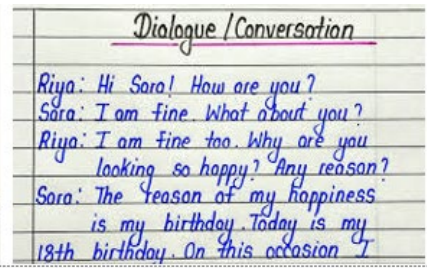 Dialogue/Conversation
Riya: Hi Sara! How are you?
Sara: I am fine. What about you?
Riya: I am fine too. Why are you
looking so happy? Any reason?
Sara: The reason of my happiness
is my birthday. Today is my
18th birthday. On this occasion I